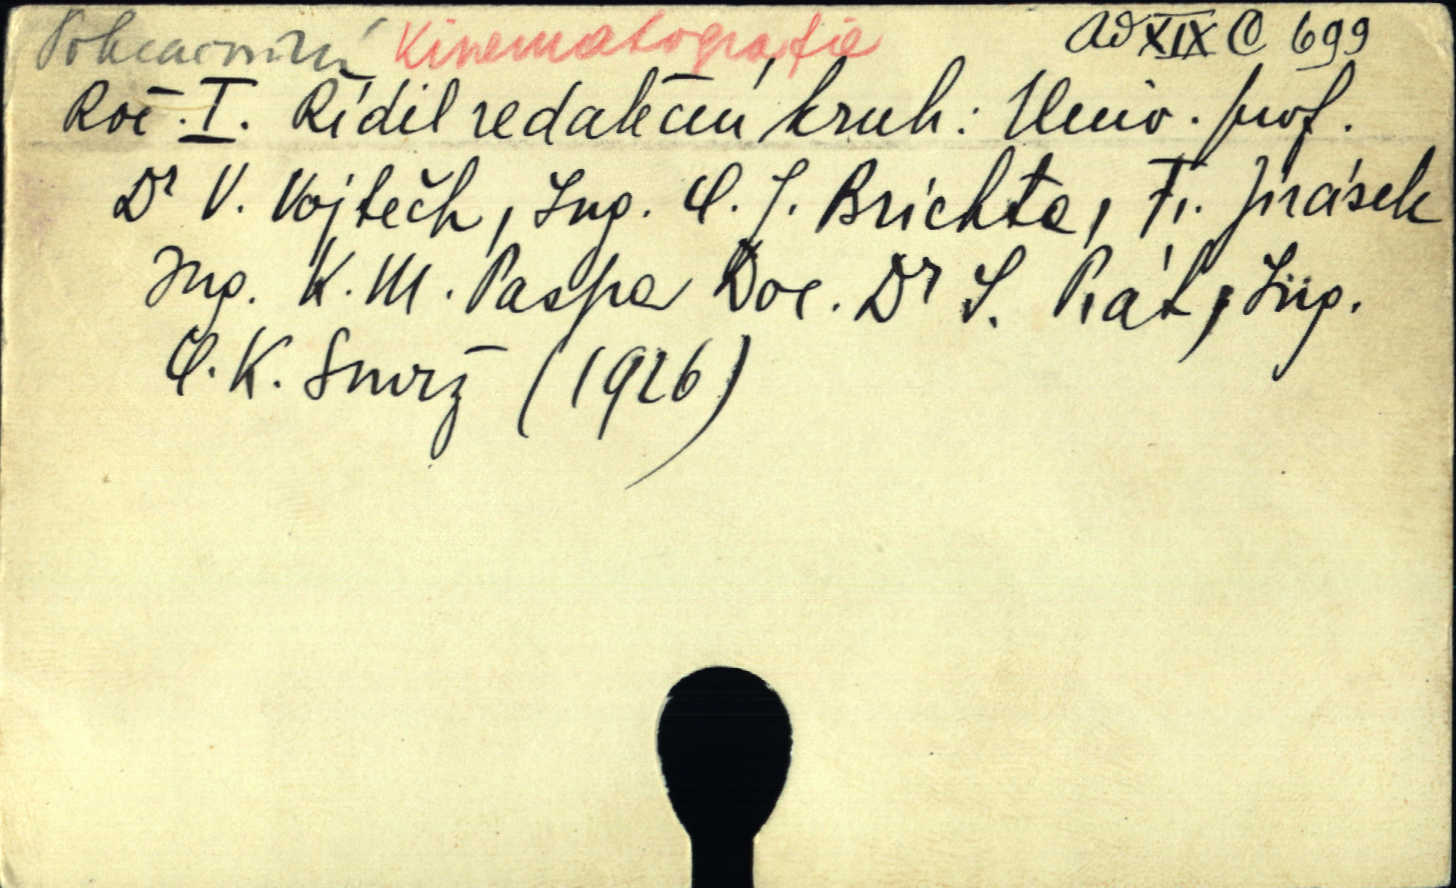 Pokračování Kinematografie ad XIX C 699
Roč. I. Řídil redakční kruh: Univ. prof.
Dr V. Vojtěch, Ing. C. J. Brichta, Fr. Jirásek
Ing. K. M. Paspa Doc. Dr S. Prát, Ing.
C. K. Smrž (1926)